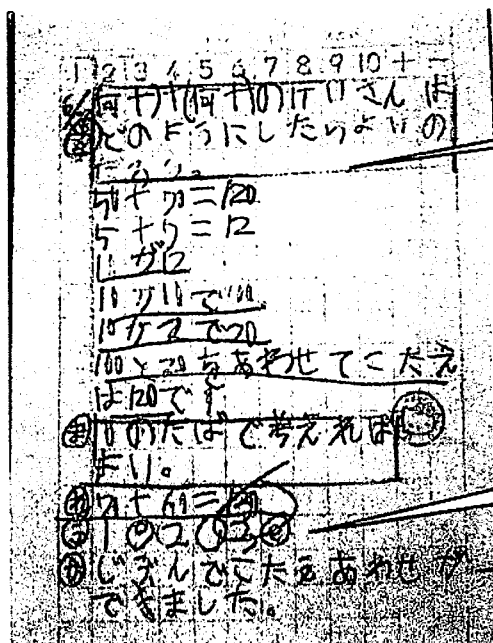 1 2 3 4 5 6 7 8 9 10 + −
何十+何十のけいさんは
どのようにしたらよいの
だろう。
50+70=120
5+7=12
10が12
10が10で100
10が2で20
100と20をあわせてこたえ
は120です
10のたばで考えれば
よい。
じぶんでこたえあわせが
できました。